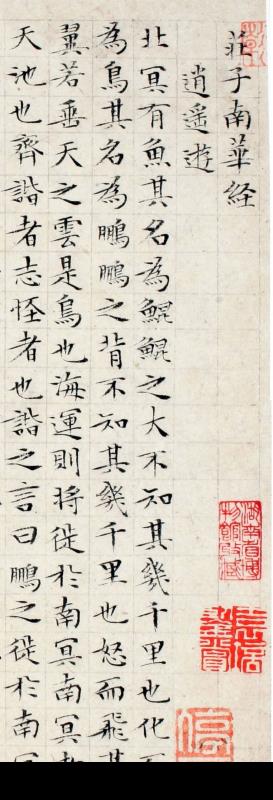 莊子南華経
逍遙遊
北冥有魚其名為鯤鯤之大不知其幾千里也化
為鳥其名為鵬鵬之背不知其幾千里也怒而飛其
翼若垂天之雲是鳥也海運則将徙於南冥南冥
天池也齊諧者志怪者也諧之言曰鵬之徙於南冥